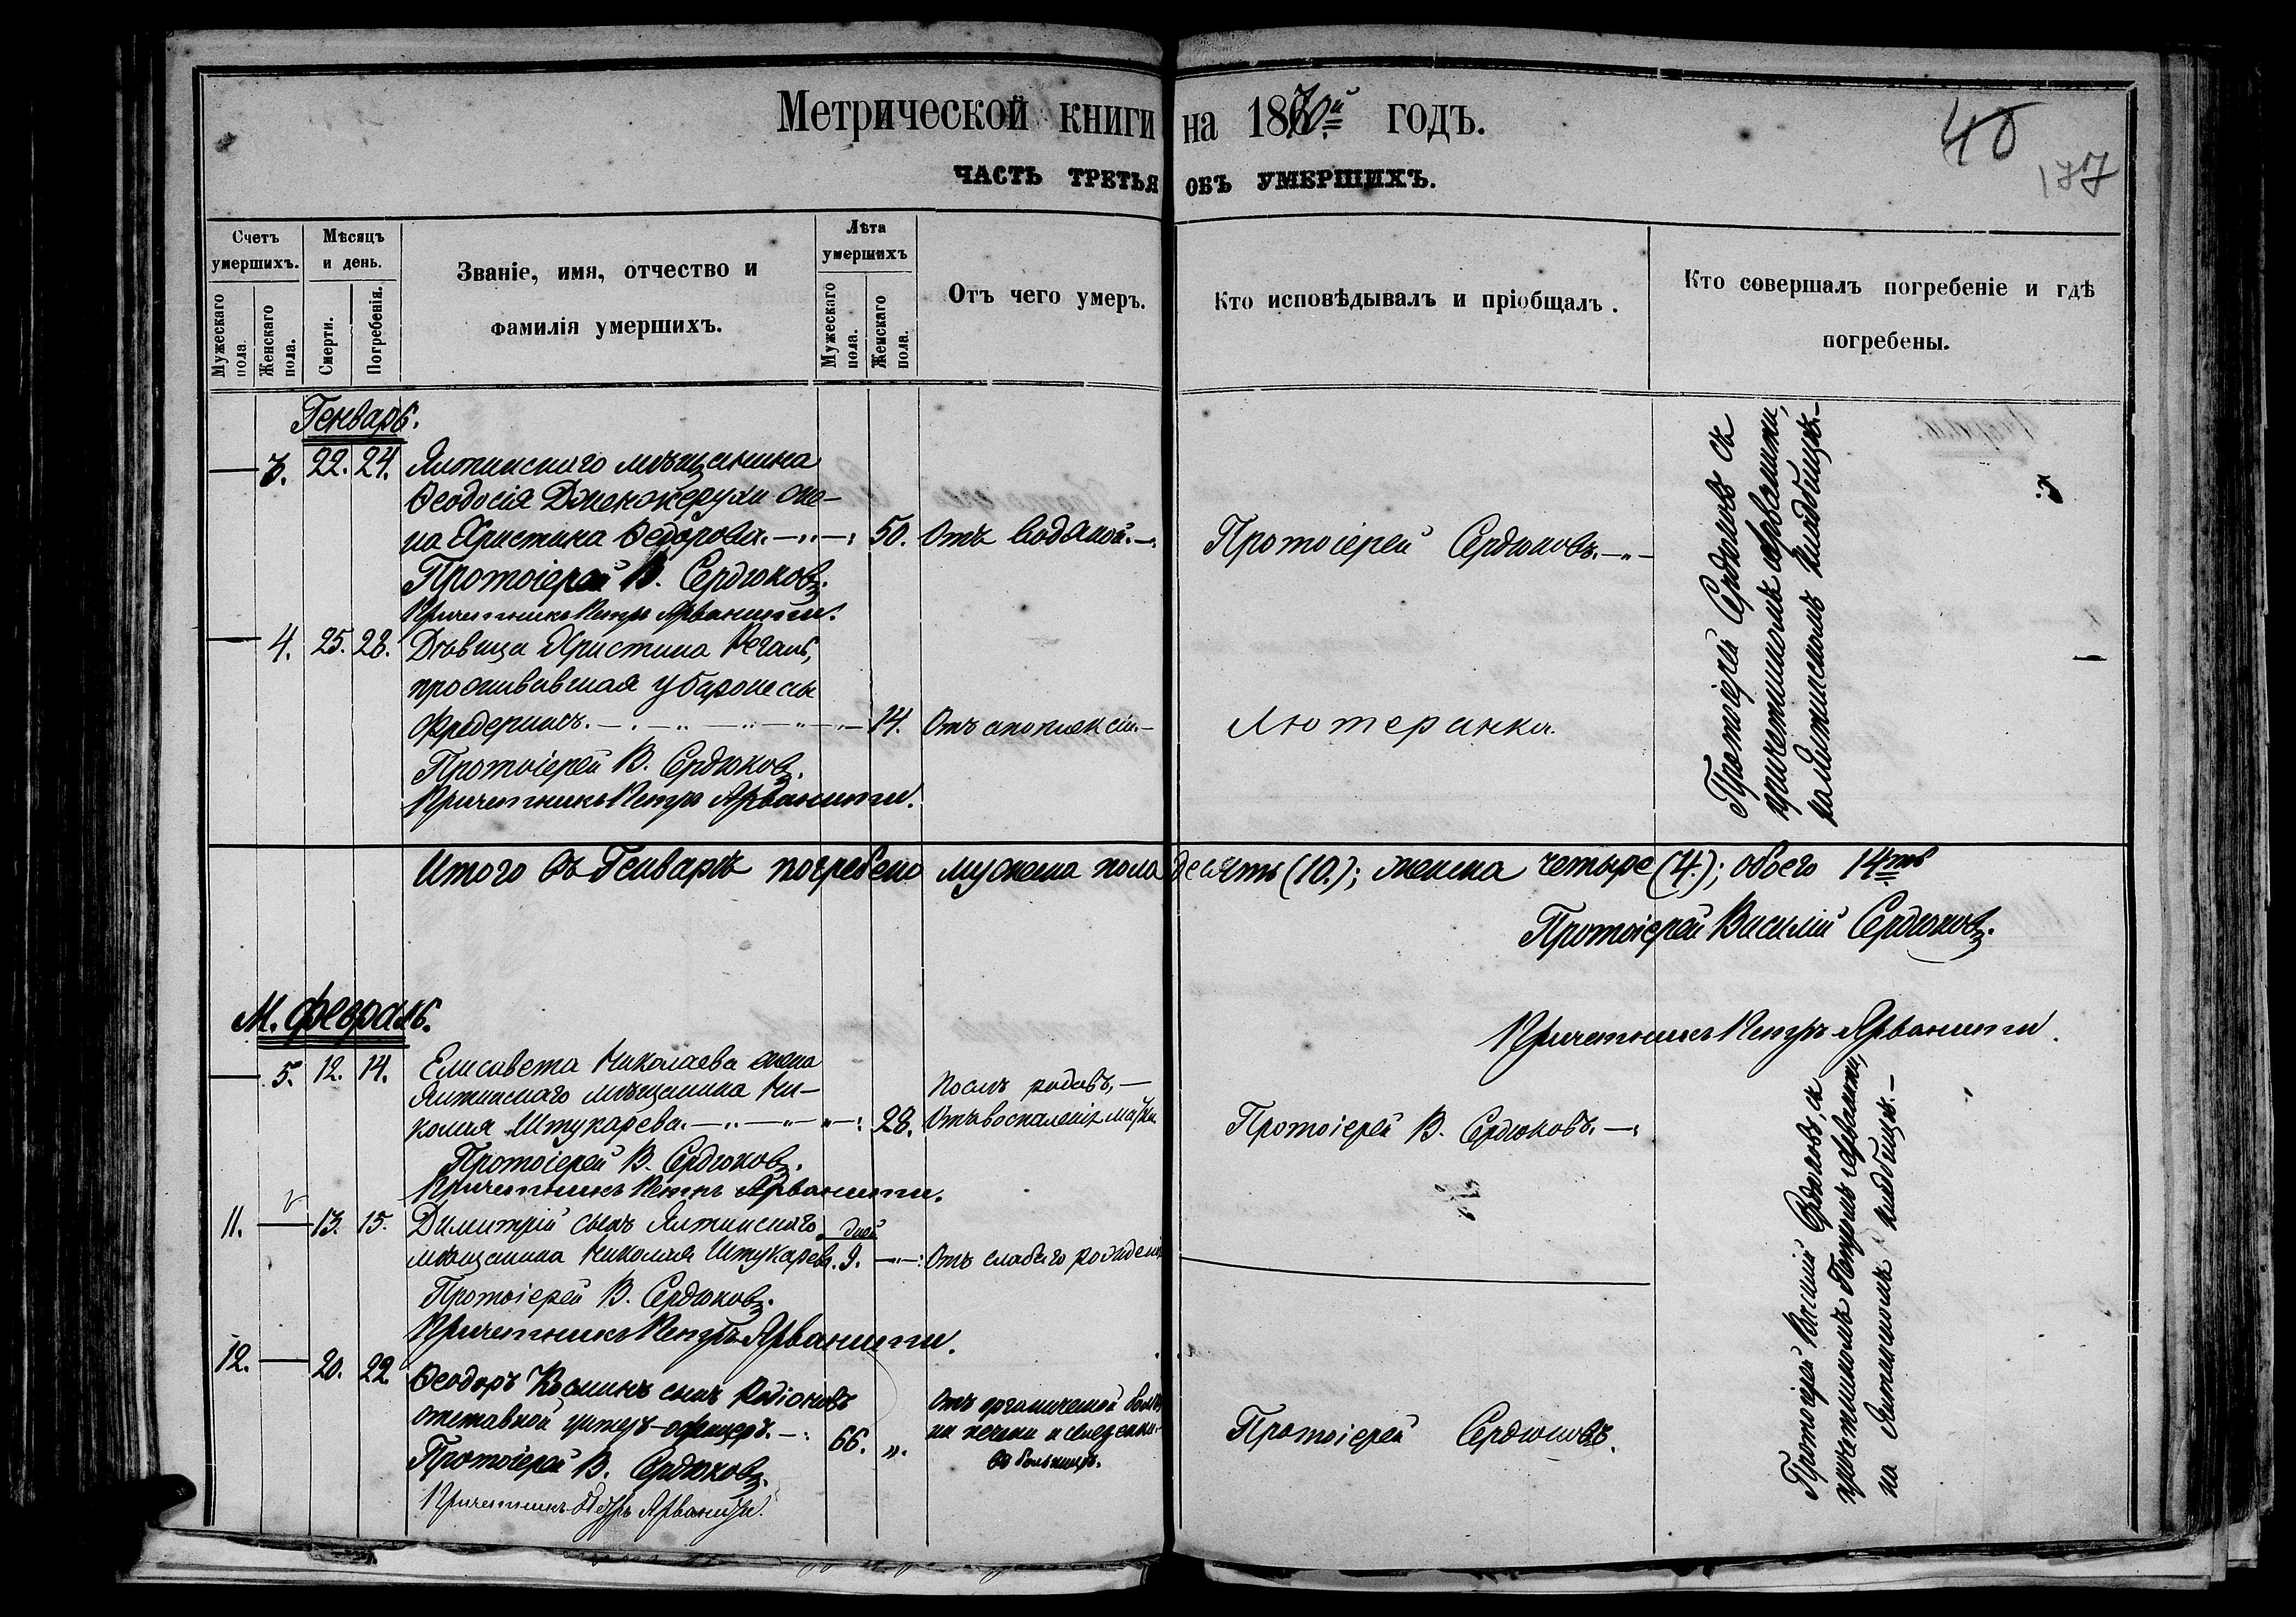 Метрической книги на 1870й годъ.
40
177
ЧАСТЬ ТРЕТЬЯ ОБЪ УМЕРШИХЪ.
Счетъ умершихъ.
Мужескаго пола.
Женскаго пола.
Мѣсяцъ и день.
Смерти.
Погребенія.
Званіе, имя, отчество и
фамилія умершихъ.
Лѣта умершихъ
Мужескаго пола.
Женскаго пола.
Отъ чего умеръ.
Кто исповѣдывалъ и пріобщалъ.
Кто совершалъ погребеніе и гдѣ
погребены.
Генварь.
— 3. 22. 24. Ялтинскаго мѣщанина
Ѳеодосія же-
на Христина Ѳедорова. 50. Отъ водяной. Протоіерей Сердюковъ.
Протоіерей В. Сердюковъ.
Причетникъ Петръ Арванити.
— 4. 25. 28. Дѣвица Христина
проживавшая у баронесы
Фредериксъ. 14. Отъ апоплексіи. Лютеранка.
Протоіерей В. Сердюковъ.
Причетникъ Петръ Арванити.
Протоіерей Сердюковъ съ
причетникомъ Арванити,
на Ялтинскомъ кладбищѣ.
Итого въ Генварѣ погребено мужска пола десять (10.); женска четыре (4.); обоего 14ть
Протоіерей Василій Сердюковъ.
Причетникъ Петръ Арванити.
М. Февраль.
— 5. 12. 14. Елисавета Николаева жена
Ялтинскаго мѣщанина Ни-
колая Штукарева. 28. Послѣ родовъ,
Отъ воспаленія матки Протоіерей В. Сердюковъ.
Протоіерей В. Сердюковъ.
Причетникъ Петръ Арванити.
11. — 13. 15. Димитрій сынъ Ялтинскаго дней
мѣщанина Николая Штукарева. 9. Отъ слабаго рожденія
Протоіерей В. Сердюковъ.
Причетникъ Петръ Арванити.
12. — 20. 22. Ѳеодоръ Косминъ сынъ Родіоновъ
отставной унтеръ-офицеръ. 66. Отъ органической
печени и селезенки.
въ больницѣ. Протоіерей Сердюковъ.
Протоіерей В. Сердюковъ.
Причетникъ Петръ Арванити.
Протоіерей Василій Сердюковъ, съ
причетникомъ Петромъ Арванити,
на Ялтинскомъ кладбищѣ.